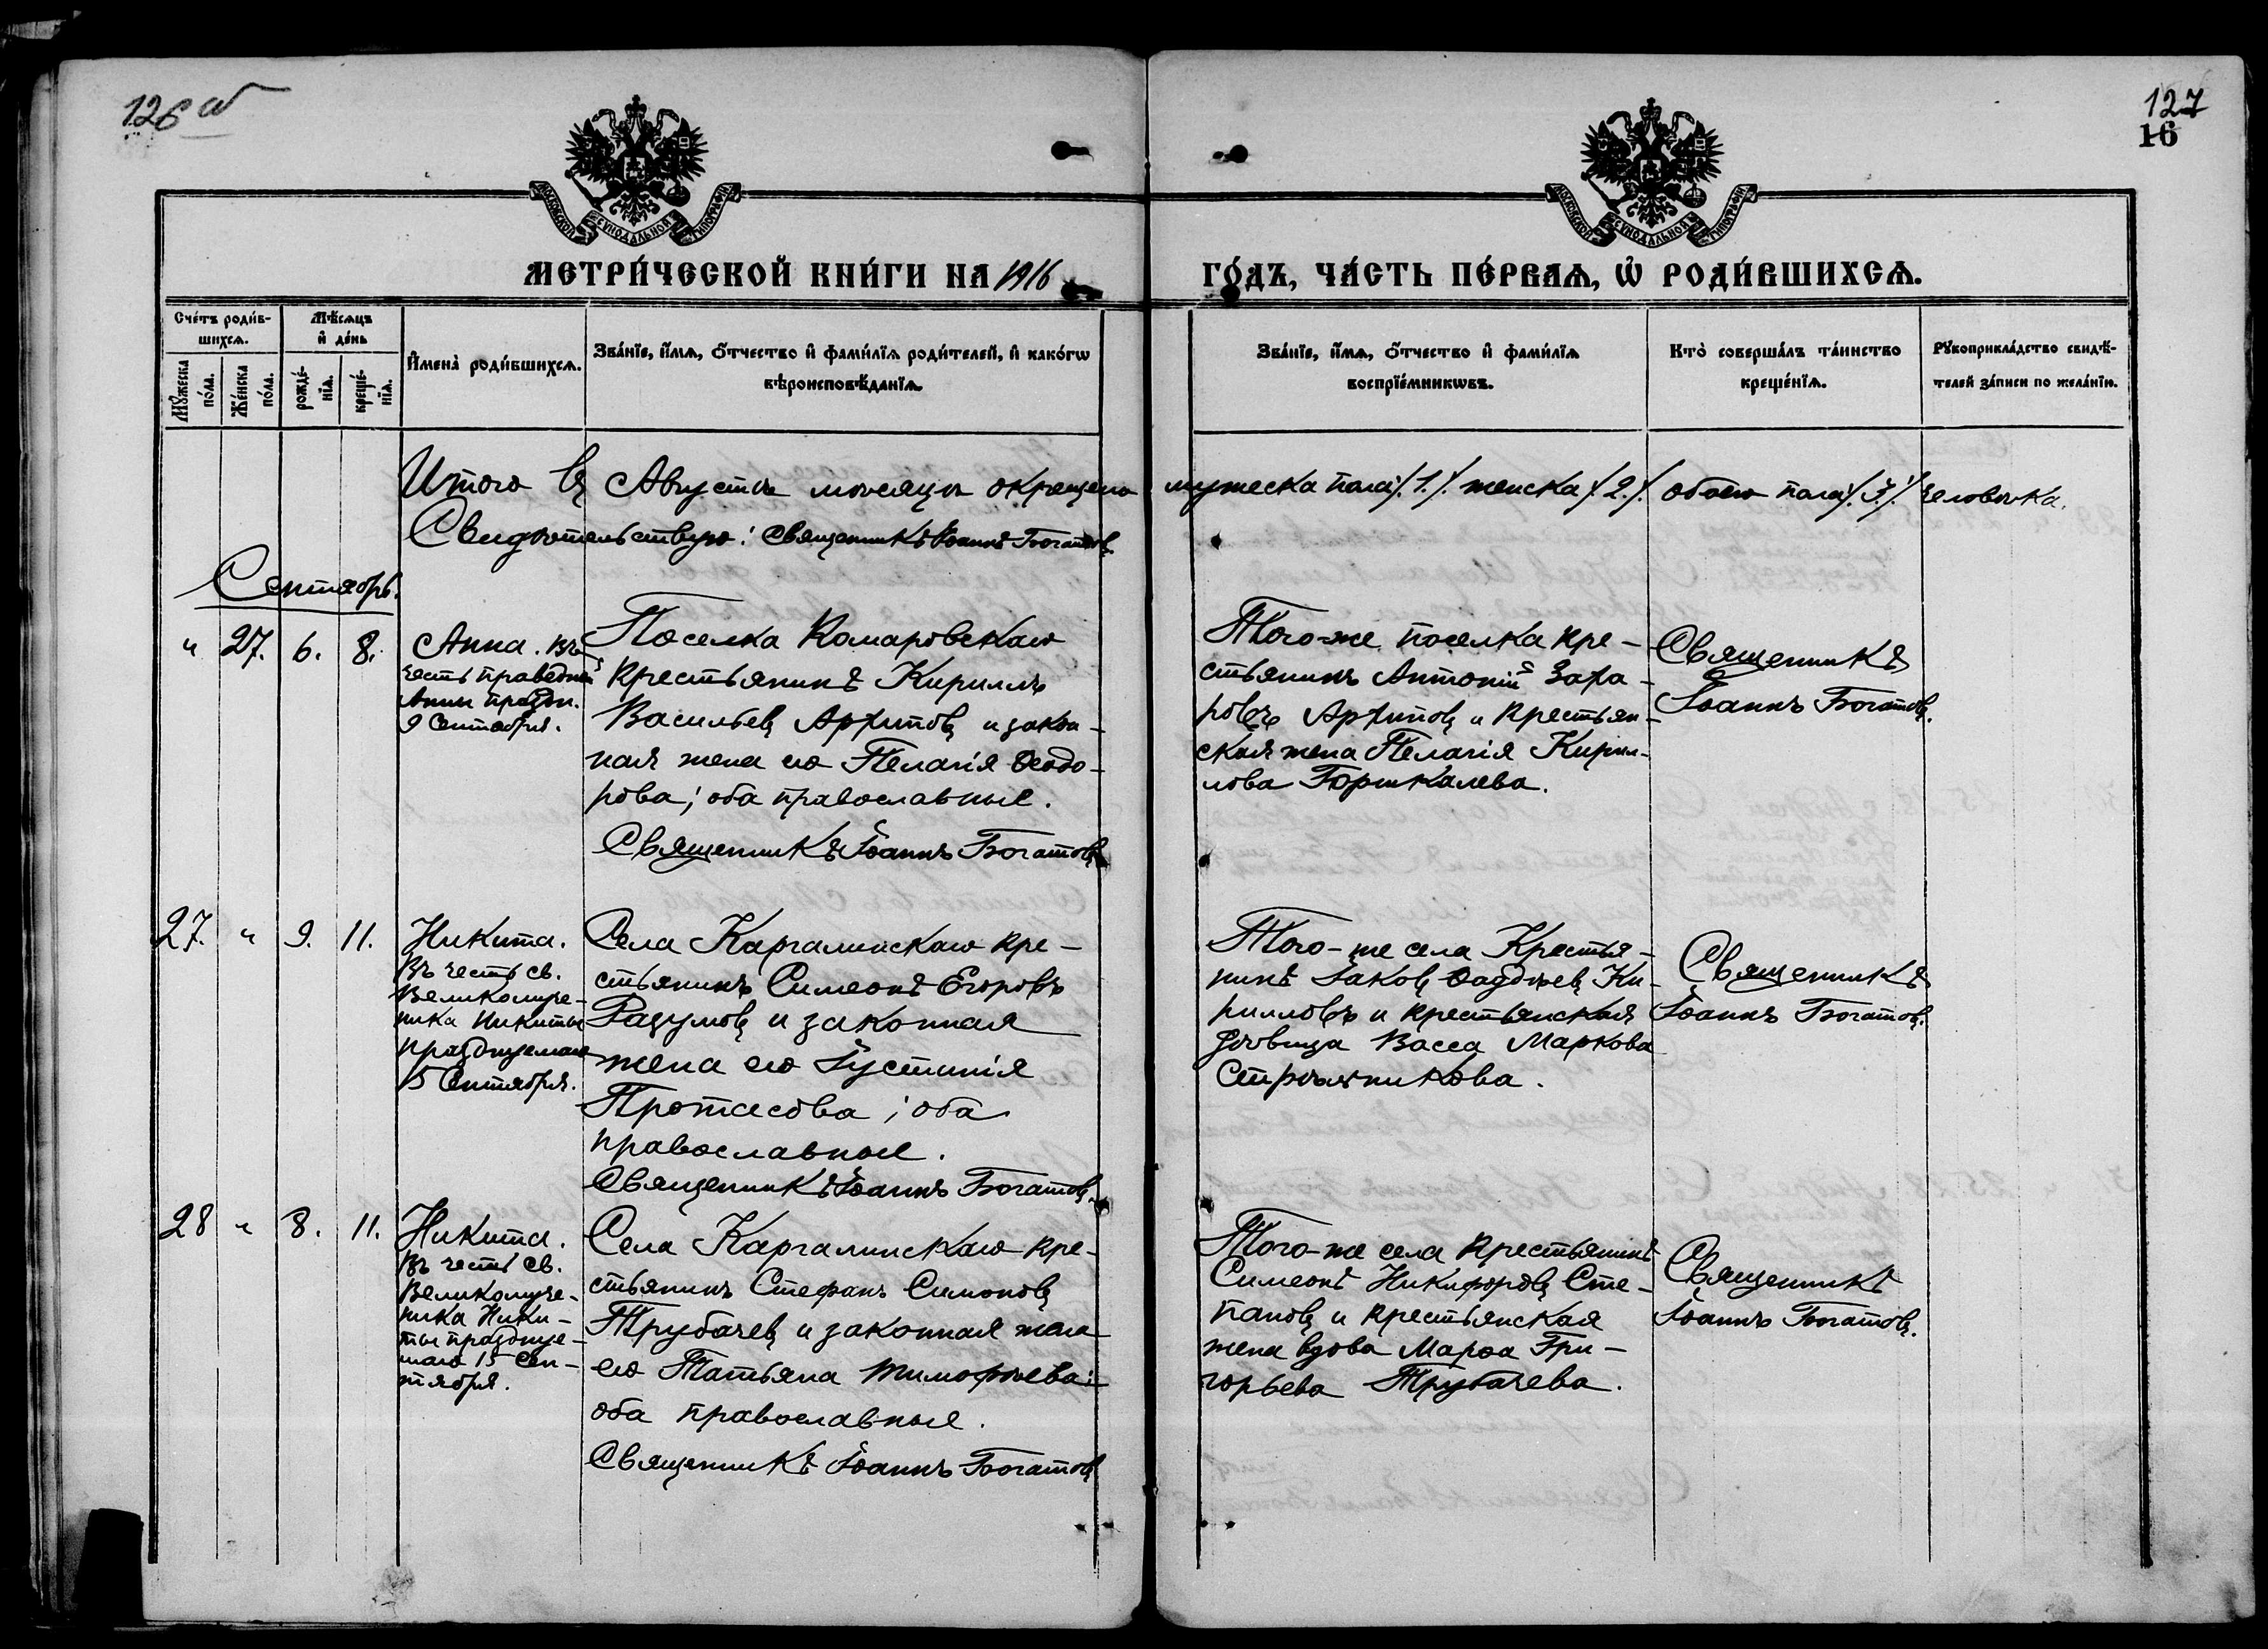 126 об
127
16
МОСКОВСКОЙ СУНОДАЛЬНОЙ ТИПОГРАФІИ
МОСКОВСКОЙ СУНОДАЛЬНОЙ ТИПОГРАФІИ
МЕТРИ́ЧЕСКОЙ КНИ́ГИ НА 1916 ГО́ДЪ, ЧА́СТЬ ПЕ́РВАѦ, Ѡ РОДИ́ВШИХСѦ.
Сче́тъ роди́в-
шихсѧ.
Мꙋ́жеска
по́ла.
Же́нска
по́ла.
Мѣ́сѧцъ
и҆ де́нь
рожде́-
нїѧ.
креще́-
нїѧ.
И҆мена̀ роди́вшихсѧ.
Зва́нїе, и҆́мѧ, ѻ҆́тчество и҆ фами́лїѧ роди́телей, и҆ како́гѡ
вѣроисповѣ́данїѧ.
Зва́нїе, и҆́мѧ, ѻ҆́тчество и҆ фами́лїѧ
воспрїе́мникѡвъ.
Кто̀ соверша́лъ та́инство
креще́нїѧ.
Рꙋкоприкла́дство свидѣ́-
телей за́писи по жела́нїю.
Итого въ Августѣ мѣсяцѣ окрещено мужеска пола /.1./ женска /.2./ обоего пола /.3./ человѣка.
Свидѣтельствую: Священникъ Іоаннъ Богатовъ
Сентябрь.
" 27. 6. 8.
Анна. Въ
честь праведной
Анны праздн.
9 Сентября.
Поселка Комаровскаго
крестьянинъ Кириллъ
Васильевъ Архиповъ и закон-
ная жена его Пелагія Ѳеодо-
рова; оба православные.
Священникъ Іоаннъ Богатовъ
Того-же поселка кре-
стьянинъ Антоній Заха-
ровъ Архиповъ и крестьян-
ская жена Пелагія Кирил-
лова Горшкалева.
Священникъ
Іоаннъ Богатовъ.
27. " 9. 11.
Никита.
Въ честь св.
Великомуче-
ника Никиты
празднуемаго
15 Сентября.
Села Каргалинскаго кре-
стьянинъ Симеонъ Егоровъ
Разумовъ и законная
жена его Іустинія
Протасова; оба
православные.
Священникъ Іоаннъ Богатовъ.
Того-же села Крестья-
нинъ Іаковъ Ѳаддѣевъ Ки-
рилловъ и крестьянская
дѣвица Васса Маркова
Стрѣльникова.
Священникъ
Іоаннъ Богатовъ.
28 " 8. 11.
Никита.
Въ честь св.
Великомуче-
ника Ники-
ты празднуе-
маго 15 Сен-
тября.
Села Каргалинскаго кре-
стьянинъ Стефанъ Симоновъ
Трубачевъ и законная жена
его Татьяна Тимофѣева;
оба православные.
Священникъ Іоаннъ Богатовъ
Того-же села крестьянинъ
Симеонъ Никифоровъ Сте-
пановъ и крестьянская
жена вдова Марѳа Гри-
горьева Трубачева.
Священникъ
Іоаннъ Богатовъ.